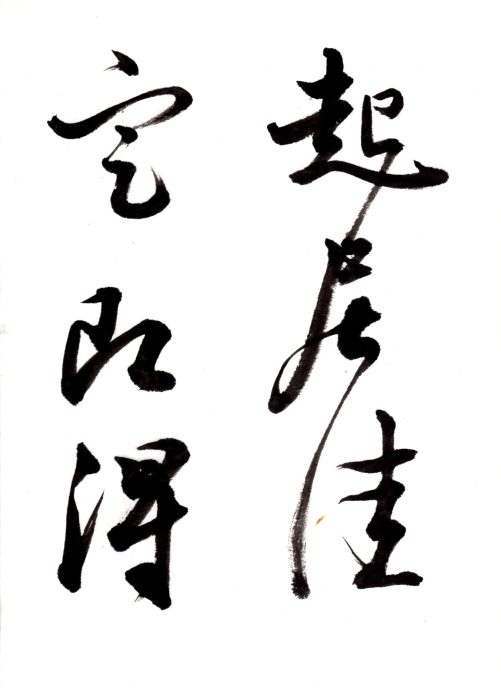 起居佳
定即得